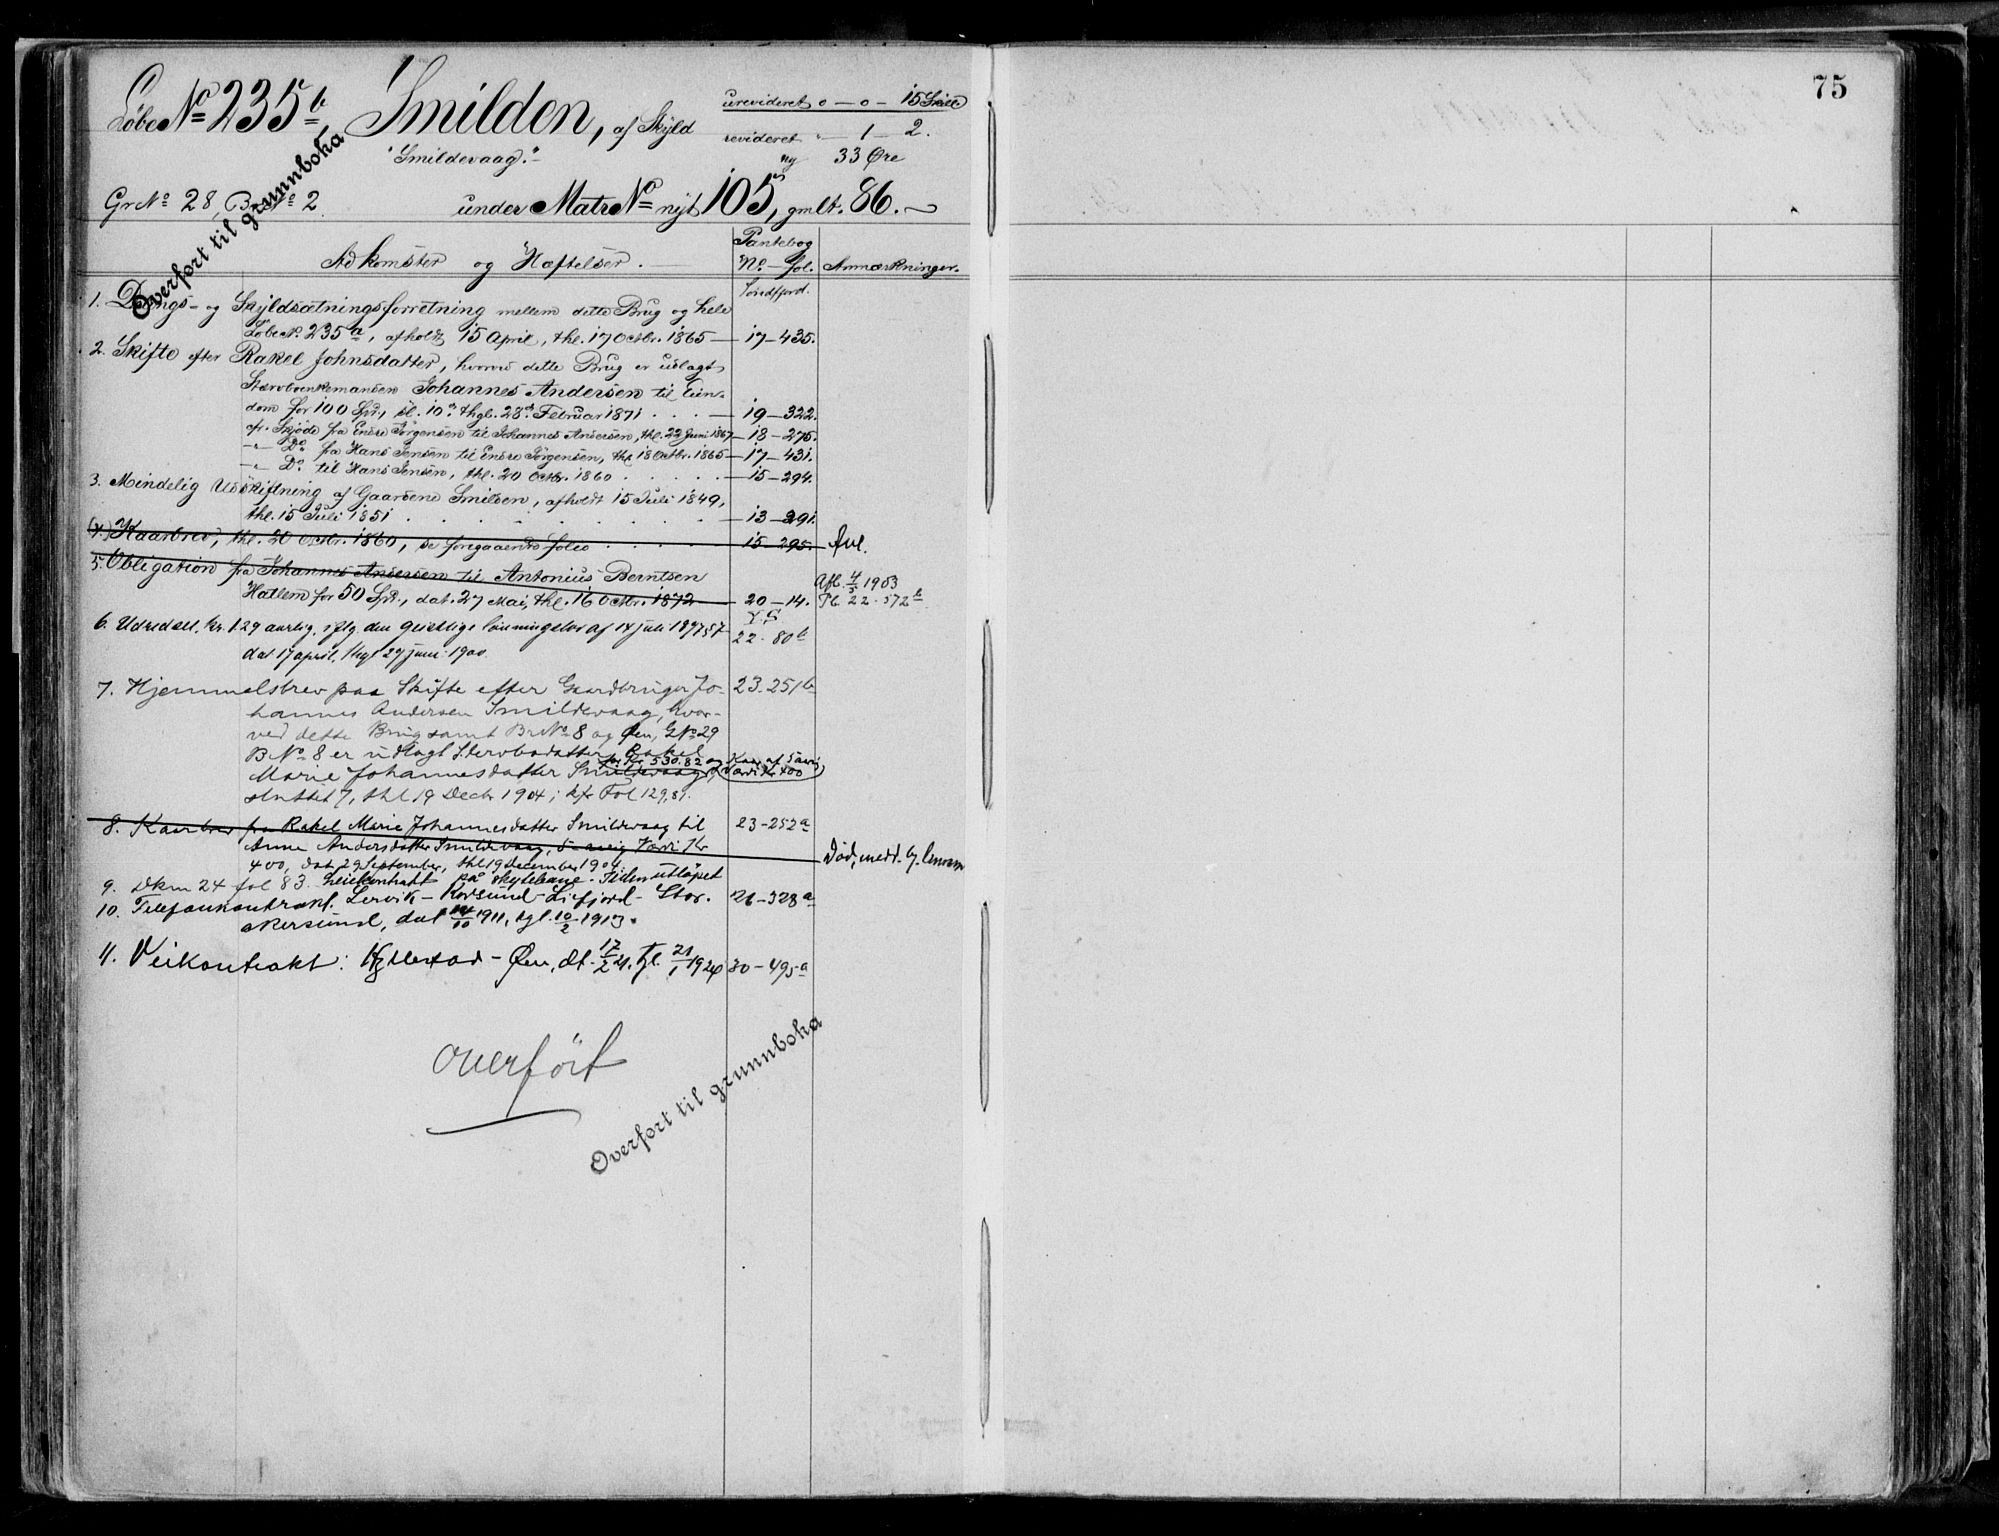 75
LøbeNº 235 b, Smilden, af Skyld
urevideret 0 — 0 — 15 Skill
revideret " — 1 — 2.
"Smildevaag."
ny 33 Øre
Gr Nº 28, Br Nº 2. under Matr Nº nyt 105, gmlt. 86.
Overført til grunnboka
Adkomster og Hæftelser.
Pantebog
Nº — fol. Anmærkninger.
Søndfjord.
1. Delings- og Skyldsætningsforretning mellem dette Brug og hele
Løbe Nº 235 a, afholdt 15 April, thl. 17 Octbr. 1865 — 17 — 435.
2. Skifte efter Rakel Johnsdatter, hvorved dette Brug er udlagt
Stervboenkemanden Johannes Andersen til Eien-
dom for 100 Spd., sl. 10. thgl. 28. Februar 1871 . . . — 19 — 322.
cfr. Skjøde fra Endre Jørgensen til Johannes Andersen, thl. 22 Juni 1867 — 18 — 275.
—"— Do. fra Hans Jensen til Endre Jørgensen, thl. 18 Octbr. 1865 — 17 — 431.
—"— Do. til Hans Jensen, thl. 20 Octbr. 1860 . . . . . — 15 — 294.
3. Mindelig Udskiftning af Gaarden Smilden, afholdt 15 Juli 1849,
thl. 15 Juli 1851 . . . . . . . — 13 — 291.
(4.) Kaarbrev, thl. 20 Octbr. 1860, se foregaaende folio . . . . 15 — 295. Avl.
5. Obligation fra Johannes Andersen til Antonius Berntsen
Hatlem for 50 Spd., dat. 27 Mai, thl. 16 Octbr. 1872 — 20 — 14.
Afl. 4/5 1903
Pb. 22 - 572 b
6. Udredsel, kr. 1.29 aarlig, iflg. den geistlige lønningslov af 14 juli 1897 § 7
Y. S
22 - 80 b
dat 17 april, thgl 27 juni 1900.
7. Hjemmelsbrev paa Skifte efter Gaardbruger Jo- 23-251 b
hannes Andersen Smildevaag, hvor-
ved dette Brug samt Br Nº 8 og Øen, G Nº 29
B Nº 8 er udlagt Stervbodatter Rakel
for Kr 530.82 og Kaar af 5 aarig
Værdi Kr 400
Marie Johannesdatter Smildevaag,
sluttet 7, thl 19 Decbr 1904; kfr Fol 129, 81.
8. Kaarbrev fra Rakel Marie Johannesdatter Smildevaag til 23-252 a
Anne Andersdatter Smildevaag, 5-aarig Værdi Kr
400, dat 29 September, thl 19 December 1904.
Død, medd. af Lensm
9. Dkm 24 fol 83. Leiekontrakt på skytebane. Tiden utløpet
10. Telefonkontrakt. Lervik — Korssund — Lifjord — Stor- 26-328 a
akersund, dat 10 1911, tgl. 10/2 1913.
11. Veikontrakt: Hyllestad — Øen, dt. 17/2 21. Tgl. 21/1 1924 30-495 a
overført
Overført til grunnboka